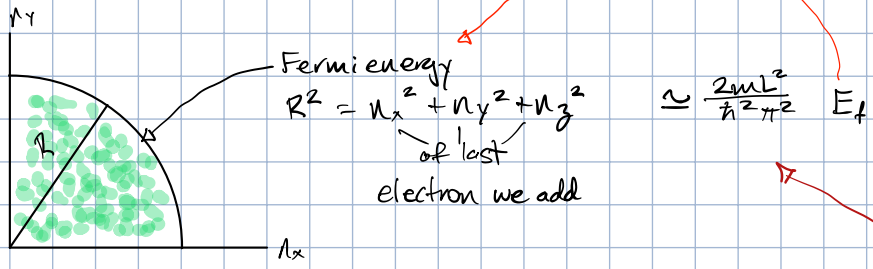 ny
Fermi energy
R² = nx² + ny² + nz² ≃ 2mL²/ħ²π² Ef
R
of last
electron we add
nx